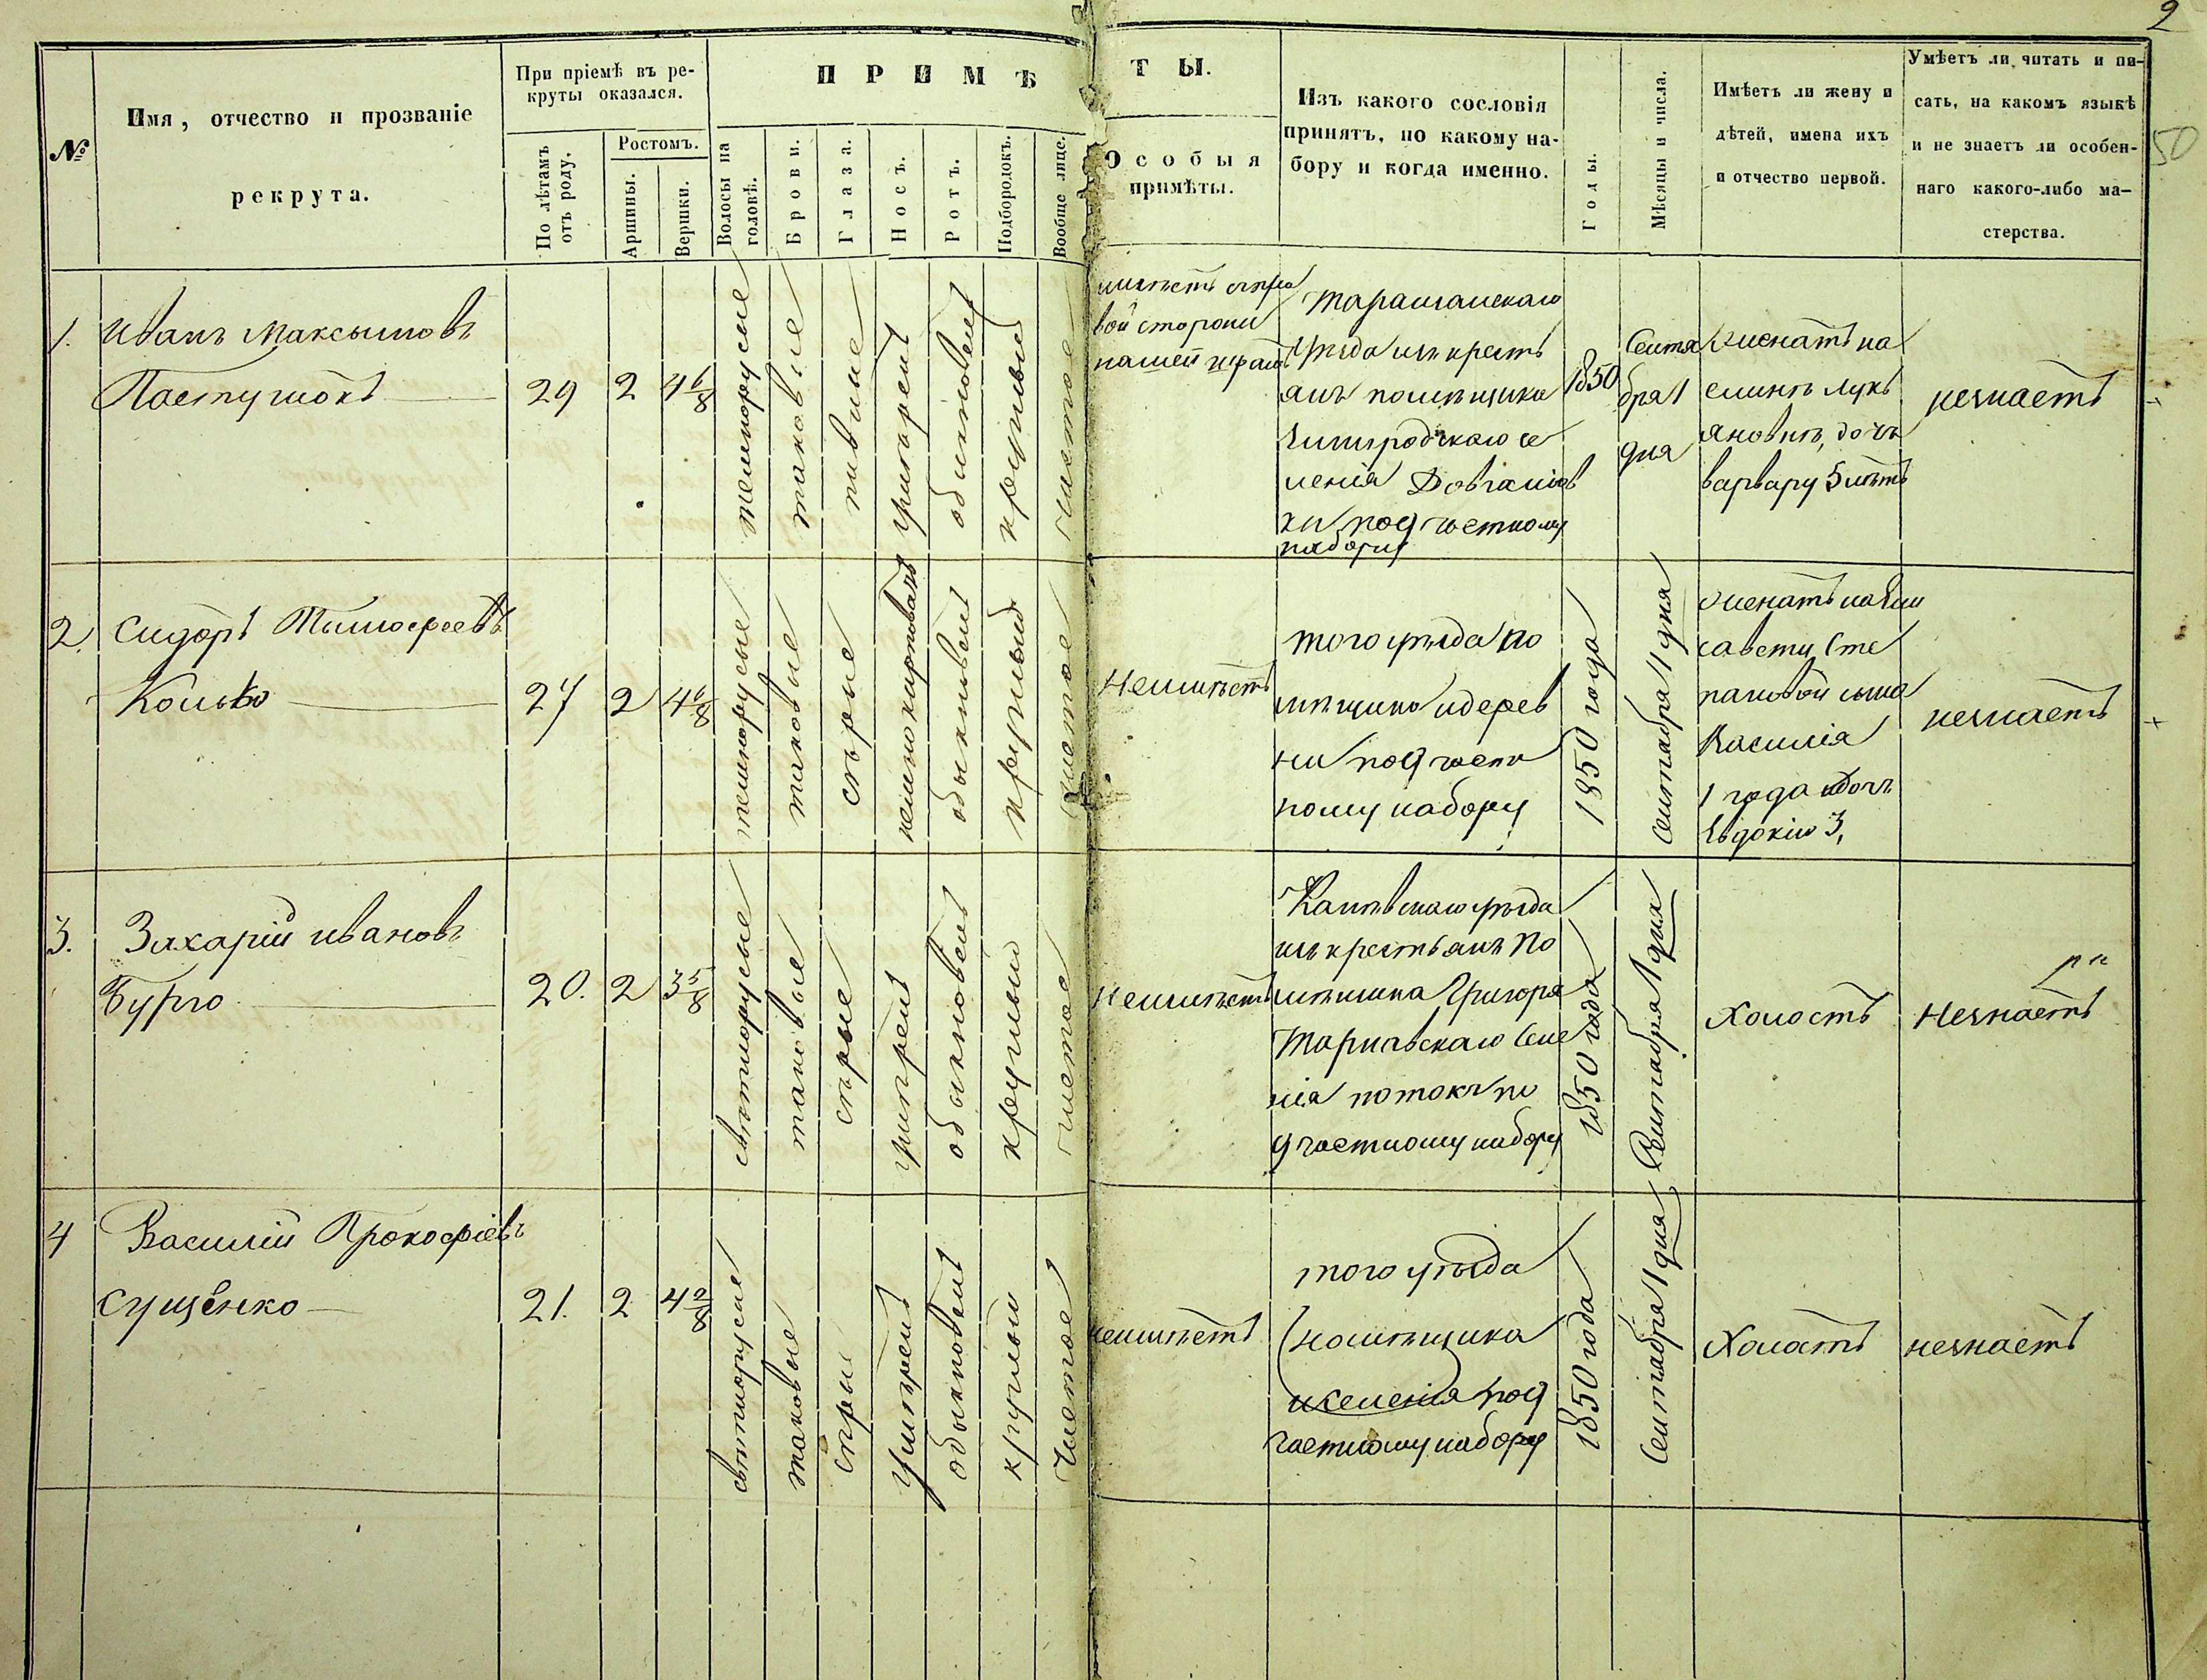 2
50
№
Имя, отчество и прозваніе
рекрута.
При пріемѣ въ ре-
круты оказался.
По лѣтамъ
отъ роду.
Ростомъ.
Аршины.
Вершки.
ПРИМѢ
ТЫ.
Волосы на
головѣ.
Брови.
Глаза.
Носъ.
Ротъ.
Подбородокъ.
Вообще лице.
Особыя
примѣты.
Изъ какого сословія
принятъ, по какому на-
бору и когда именно.
Годы.
Мѣсяцы и числа.
Имѣетъ ли жену и
дѣтей, имена ихъ
и отчество первой.
Умѣетъ ли читать и пи-
сать, на какомъ языкѣ
и не знаетъ ли особен-
наго какого-либо ма-
стерства.
1.
Иванъ Максымовъ
Пастушокъ
29
2
4 6/8
темнорусые
таковые
обыкновен
круглый
чистое
имѣетъ
вой стороны
Таращанскаго
уѣзда изъ кресть
янъ помѣщика
селенія
набору
1850
Сентя
бря 1
дня
женатъ на
Лукь
яновнѣ, дочь
варвару 5 лѣтъ
незнаетъ
2.
Сидоръ Тымофеевъ
27
2
4 6/8
темнорусые
таковые
сѣрые
обыкновен
круглый
чистое
Неимѣетъ
того уѣзда по
мѣщика идерев
ни по участ
ному набору
1850 года
Сентября 1 дня
женатъ на Ели
савету Сте
пановой сына
Василія
1 года идочь
Евдокію 3,
незнаетъ
3.
Захарій ивановъ
Бурго
20.
2
3 5/8
свѣтлорусые
таковые
сѣрые
обыкновен
круглый
чистое
Неимѣетъ
Каневскаго уѣзда
изъ крестьянъ по
мѣщика Григоря
Тарнавскаго Селе
нія потокъ по
участному набору
1850 года
Сентября 1 дня
Холостъ
Незнаетъ
4
Василій Прокофіевъ
Сущенко
21.
2
4 2/8
свѣтлорусые
таковые
сѣрые
обыкновен
круглый
Чистое
неимѣетъ
того уѣзда
помѣщика
иселенія по у
частному набору
1850 года
Сентября 1 дня
Холостъ
незнаетъ